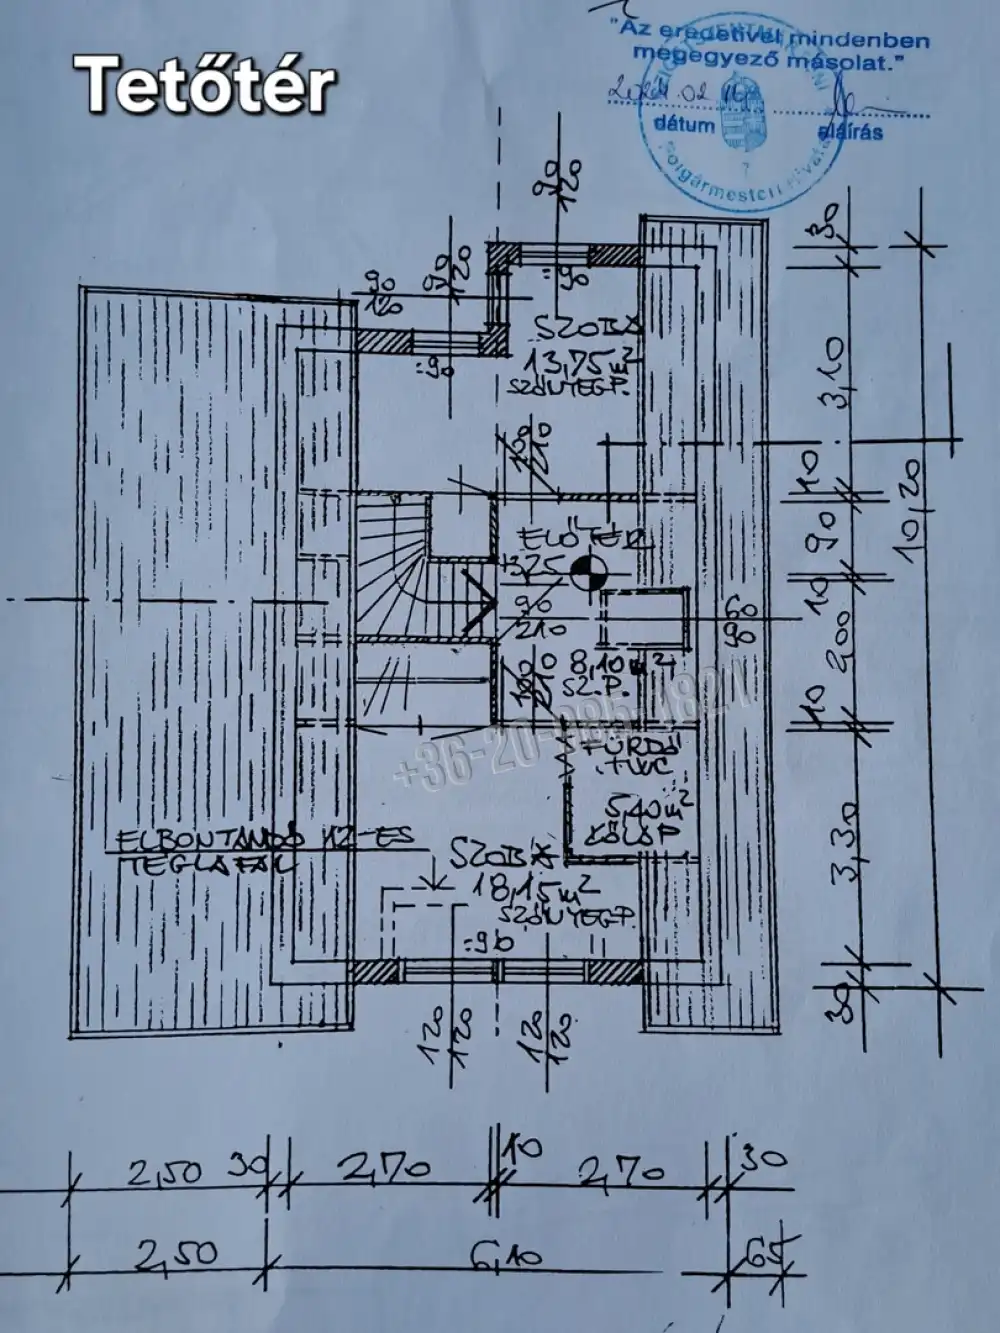 Tetőtér
"Az eredetivel mindenben
megegyező másolat."
dátum
aláírás
Polgármesteri Hivatal
90
120
90
120
90
120
:=90
:=90
SZOBA
13,75 m²
SZŐNYEGP.
100
210
ELŐTÉR
+3,25
90
210
60
90
100
210
8,10 m²
SZ.P.
+36-20-985-1821
FÜRDŐ
+WC
5,40 m²
KŐLAP
ELBONTANDÓ 12-ES
TÉGLAFAL
SZOBA
18,15 m²
SZŐNYEGP.
:=90
120
120
120
120
30
3,10
10
90
10
2,00
10
3,30
30
10,20
2,50
30
2,70
10
2,70
30
2,50
6,10
65